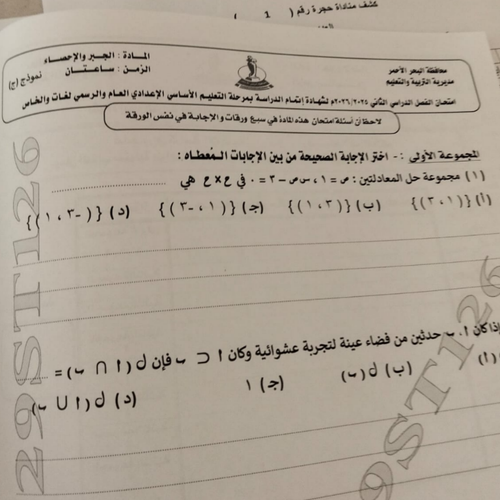 كشف مناداة حجرة رقم ( 1 )
محافظة البحر الأحمر
مديرية التربية والتعليم
المادة : الجبر والإحصاء
الزمن : ساعتان
نموذج (ج)
امتحان الفصل الدراسي الثاني ٢٠٢٦/٢٠٢٥م لشهادة إتمام الدراسة بمرحلة التعليم الأساسي الإعدادي العام والرسمي لغات والخاص
لاحظ أن أسئلة امتحان هذه المادة في سبع ورقات والإجابة في نفس الورقة
المجموعة الأولى : - اختر الإجابة الصحيحة من بين الإجابات المعطاه :
(١) مجموعة حل المعادلتين : ص = ١ ، س ص - ٣ = ٠ في ح × ح هي ..............
(أ) {(٣ ، ١)} (ب) {(١ ، ٣)} (ج) {(١ ، -٣)} (د) {(-٣ ، ١)}
إذا كان أ ، ب حدثين من فضاء عينة لتجربة عشوائية وكان أ ⊂ ب فإن ل(أ ∩ ب) = ......
(أ) (ب) ل(ب) (ج) ١ (د) ل(أ ∪ ب)
29ST126
29ST126